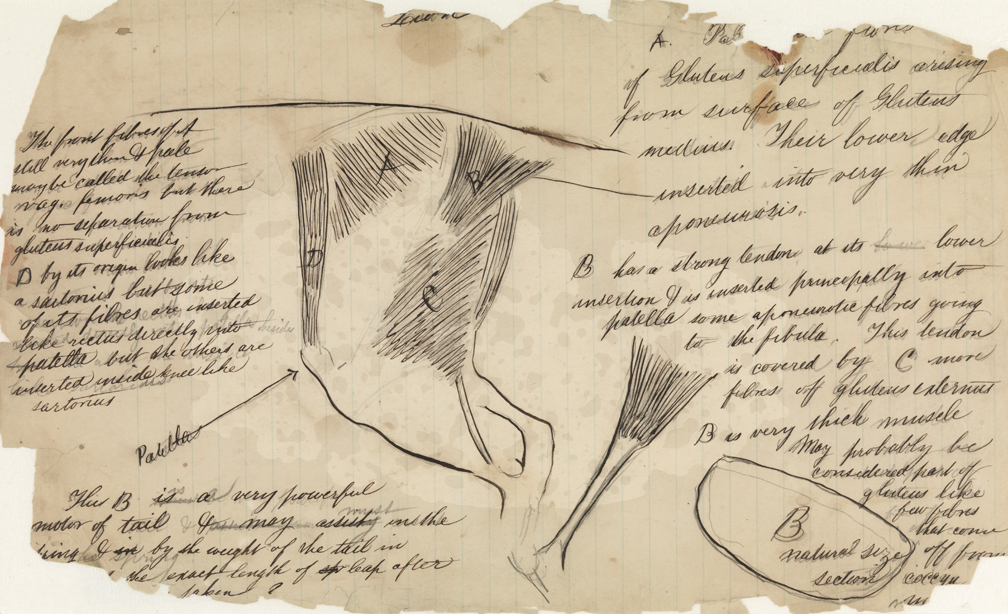 London
A. fibres
of Gluteus superficialis arising
from surface of Gluteus
medius. Their lower edge
inserted into very thin
aponeurosis.
The front fibres of A
still very thin & pale
may be called the tensor
vag. femoris but there
is no separation from
gluteus superficialis.
D by its origin looks like
a sartorius but some
of its fibres are inserted
like rectus directly into
patella but the others are
inserted inside knee like
sartorius
A
B
D
C
B has a strong tendon at its lower
insertion & is inserted principally into
patella some aponeurotic fibres going
to the fibula. This tendon
is covered by C more
fibres of gluteus externus
B is very thick muscle
May probably be
considered part of
gluteus like
few fibres
that come
off from
coccyx
Patella
B
natural size
section
This B is a very powerful
motor of tail & may assist in the
spring & in by the weight of the tail in
the exact length of leap after
taken ?